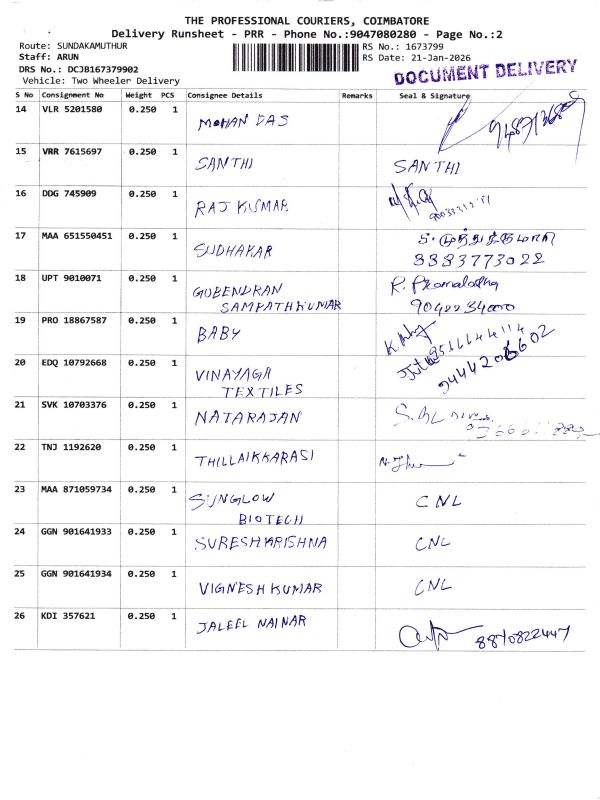 THE PROFESSIONAL COURIERS, COIMBATORE
Delivery Runsheet - PRR - Phone No.:9047080280 - Page No.:2
Route: SUNDAKAMUTHUR RS No.: 1673799
Staff: ARUN RS Date: 21-Jan-2026
DRS No.: DCJB167379902
Vehicle: Two Wheeler Delivery
DOCUMENT DELIVERY
S No Consignment No Weight PCS Consignee Details Remarks Seal & Signature
14 VLR 5201580 0.250 1 MOHAN DAS
15 VRR 7615697 0.250 1 SANTHI SANTHI
16 DDG 745909 0.250 1 RAJ KUMAR
17 MAA 651550451 0.250 1 SUDHAKAR
8883773022
18 UPT 9010071 0.250 1 GOBENDRAN
SAMPATHKUMAR
19 PRO 18867587 0.250 1 BABY
20 EDQ 10792668 0.250 1 VINAYAGA
TEXTILES
21 SVK 10703376 0.250 1 NATARAJAN
22 TNJ 1192620 0.250 1 THILLAIKKARASI
23 MAA 871059734 0.250 1 SUNGLOW CNL
BIOTECH
24 GGN 901641933 0.250 1 SURESHKRISHNA CNL
25 GGN 901641934 0.250 1 VIGNESH KUMAR CNL
26 KDI 357621 0.250 1 JALEEL NAINAR 8870822447